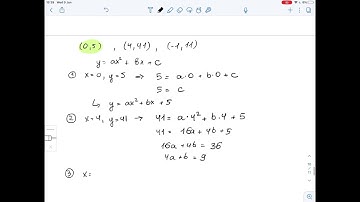 (0,5) , (4,41) , (-1,11)
y = ax² + bx + c
① x=0, y=5 ⇒ 5 = a·0 + b·0 + c
5 = c
↳ y = ax² + bx + 5
② x=4, y=41 → 41 = a·4² + b·4 + 5
41 = 16a + 4b + 5
16a + 4b = 36
4a + b = 9
③ x=